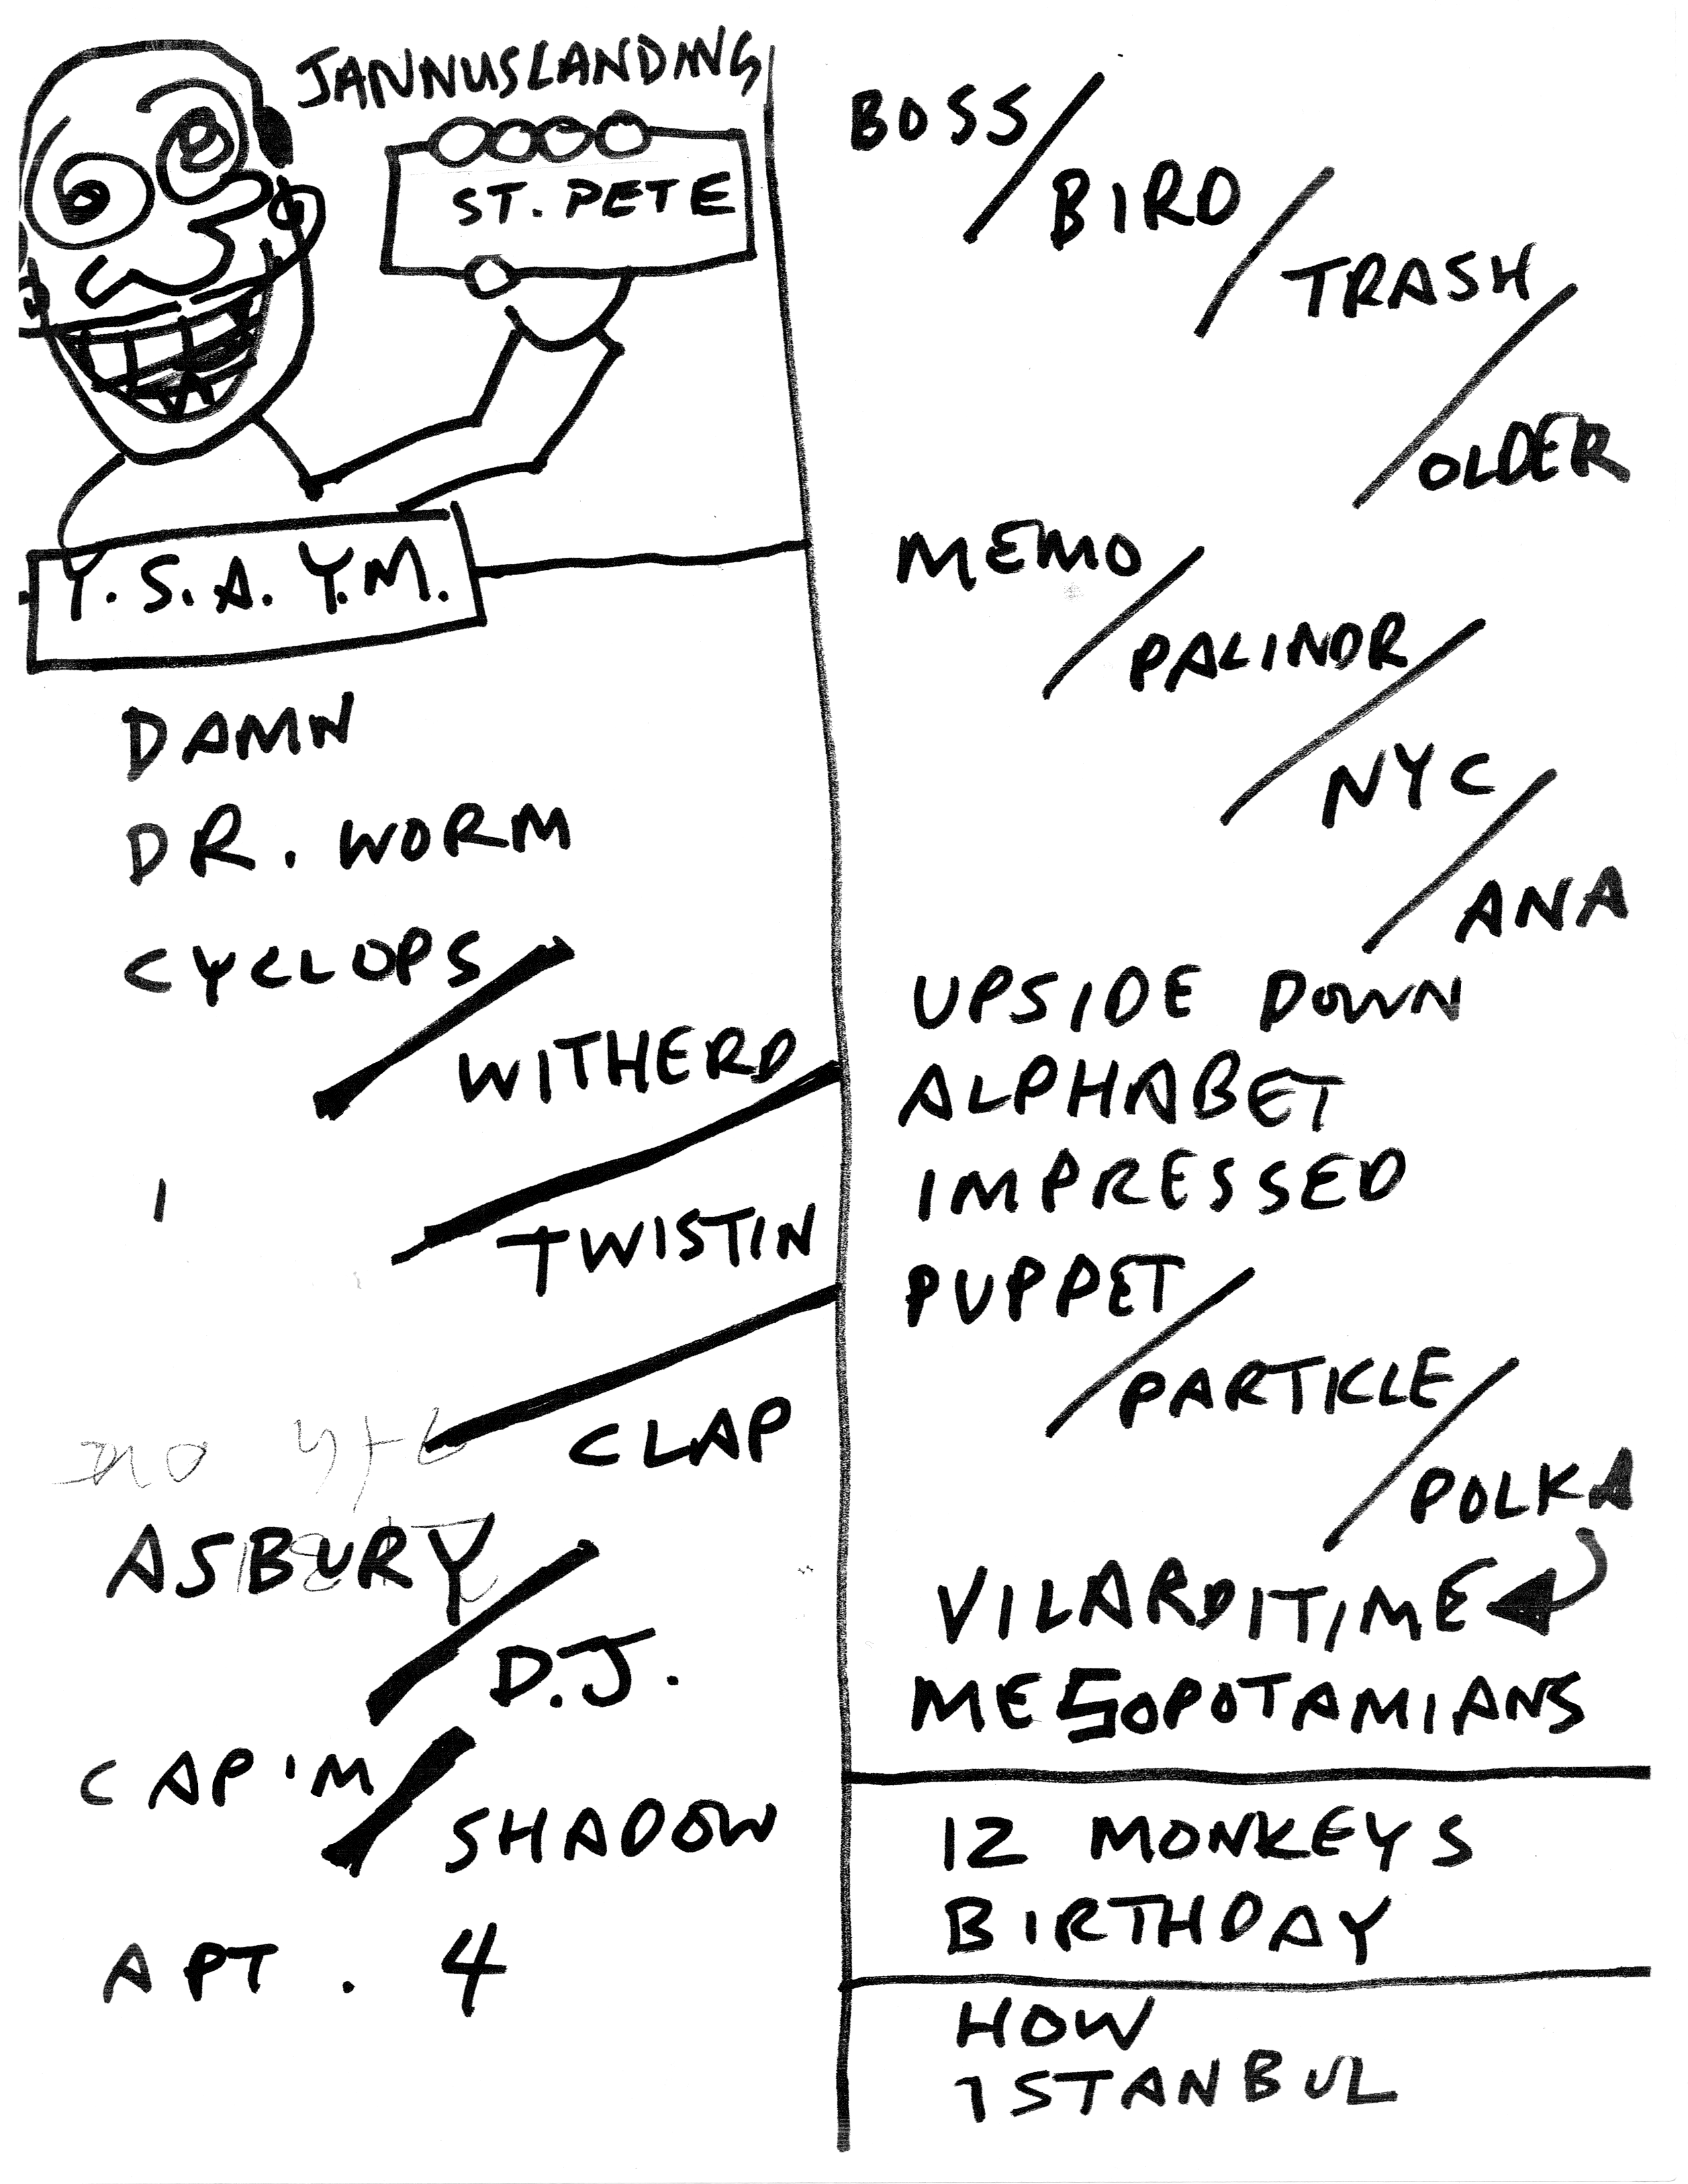 JANNUSLANDING
ST. PETE
Y.S.A.Y.M.
DAMN
DR. WORM
CYCLOPS/
WITHERD/
TWISTIN/
CLAP
ASBURY/
D.J.
CAP'M/
SHADOW
APT. 4
BOSS/
BIRD/
TRASH/
OLDER
MEMO/
PALINDR/
NYC/
ANA
UPSIDE DOWN
ALPHABET
IMPRESSED
PUPPET/
PARTICLE/
POLKA
VILARDITIME
MESOPOTAMIANS
12 MONKEYS
BIRTHDAY
HOW
ISTANBUL